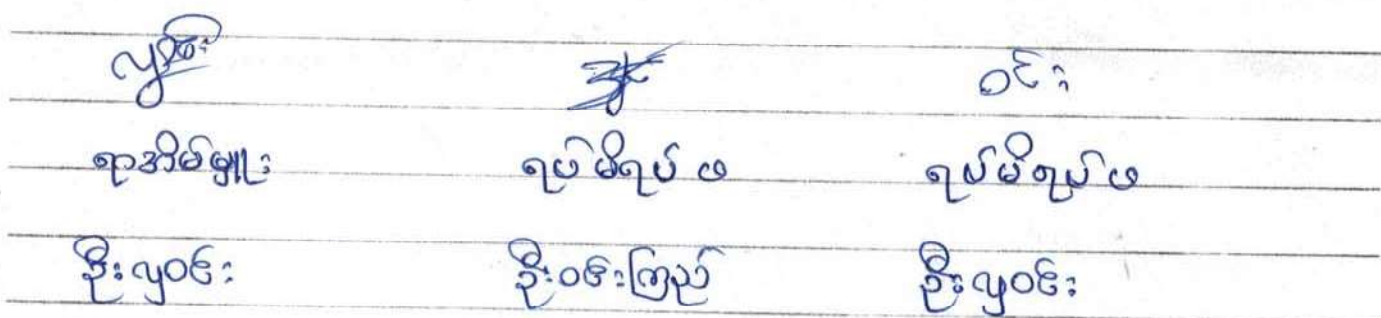 ဝင်း
ရာအိမ်မှူး ရပ်မိရပ်ဖ ရပ်မိရပ်ဖ
ဦးလှဝင်း ဦးဝင်းကြည် ဦးလှဝင်း